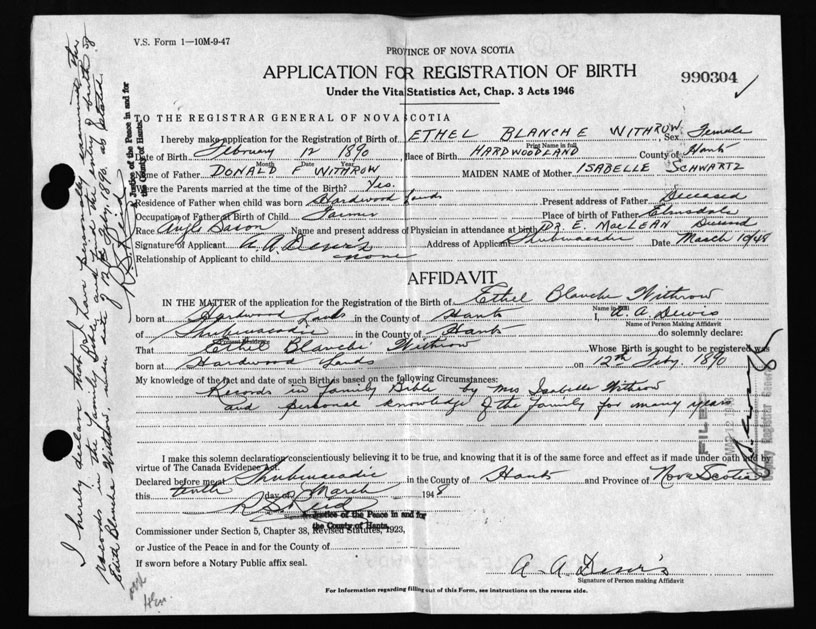 V.S. Form 1—10M-9-47
PROVINCE OF NOVA SCOTIA
APPLICATION FOR REGISTRATION OF BIRTH
990304
Under the Vital Statistics Act, Chap. 3 Acts 1946
TO THE REGISTRAR GENERAL OF NOVA SCOTIA
I hereby make application for the Registration of Birth of ETHEL BLANCHE WITHROW Sex Female
Print Name in full
Date of Birth February 12 1890 Place of Birth HARDWOODLAND County of Hants
Month Date Year
Name of Father DONALD F WITHROW MAIDEN NAME of Mother ISABELLE SCHWARTZ
Were the Parents married at the time of the Birth? Yes.
Residence of Father when child was born Hardwood Lands Present address of Father Deceased
Occupation of Father at Birth of Child Farmer Place of Birth of Father Elmsdale
Race Anglo Saxon Name and present address of Physician in attendance at birth DR. E. MacLEAN Deceased
Signature of Applicant A. A. Dewis Address of Applicant Shubenacadie Date March 10/48
Relationship of Applicant to child none
AFFIDAVIT
IN THE MATTER of the application for the Registration of the Birth of Ethel Blanche Withrow
Name in full
born at Hardwood Lands in the County of Hants I, A. A. Dewis
Name of Person Making Affidavit
of Shubenacadie in the County of Hants do solemnly declare:
That Ethel Blanche Withrow Whose Birth is sought to be registered was
born at Hardwood Lands on 12th Feby. 1890
My knowledge of the fact and date of such Birth is based on the following Circumstances:
Records in Family Bible by Mrs Isabelle Withrow
and personal knowledge of the family for many years
I make this solemn declaration conscientiously believing it to be true, and knowing that it is of the same force and effect as if made under oath and by
virtue of The Canada Evidence Act.
Declared before me at Shubenacadie in the County of Hants and Province of Nova Scotia
this tenth day of March 1948
R S Reid
Justice of the Peace in and for
the County of Hants.
Commissioner under Section 5, Chapter 38, Revised Statutes, 1923,
or Justice of the Peace in and for the County of
If sworn before a Notary Public affix seal.
A. A Dewis
Signature of Person making Affidavit
For Information regarding filling out of this Form, see instructions on the reverse side.
I hereby declare that I have personally examined the
records in the family Bible and find the entry of birth of
Edith Blanche Withrow, when date of 12th Feby. 1890 as stated.
R S Reid
Justice of the Peace in and for
the County of Hants.
FILED